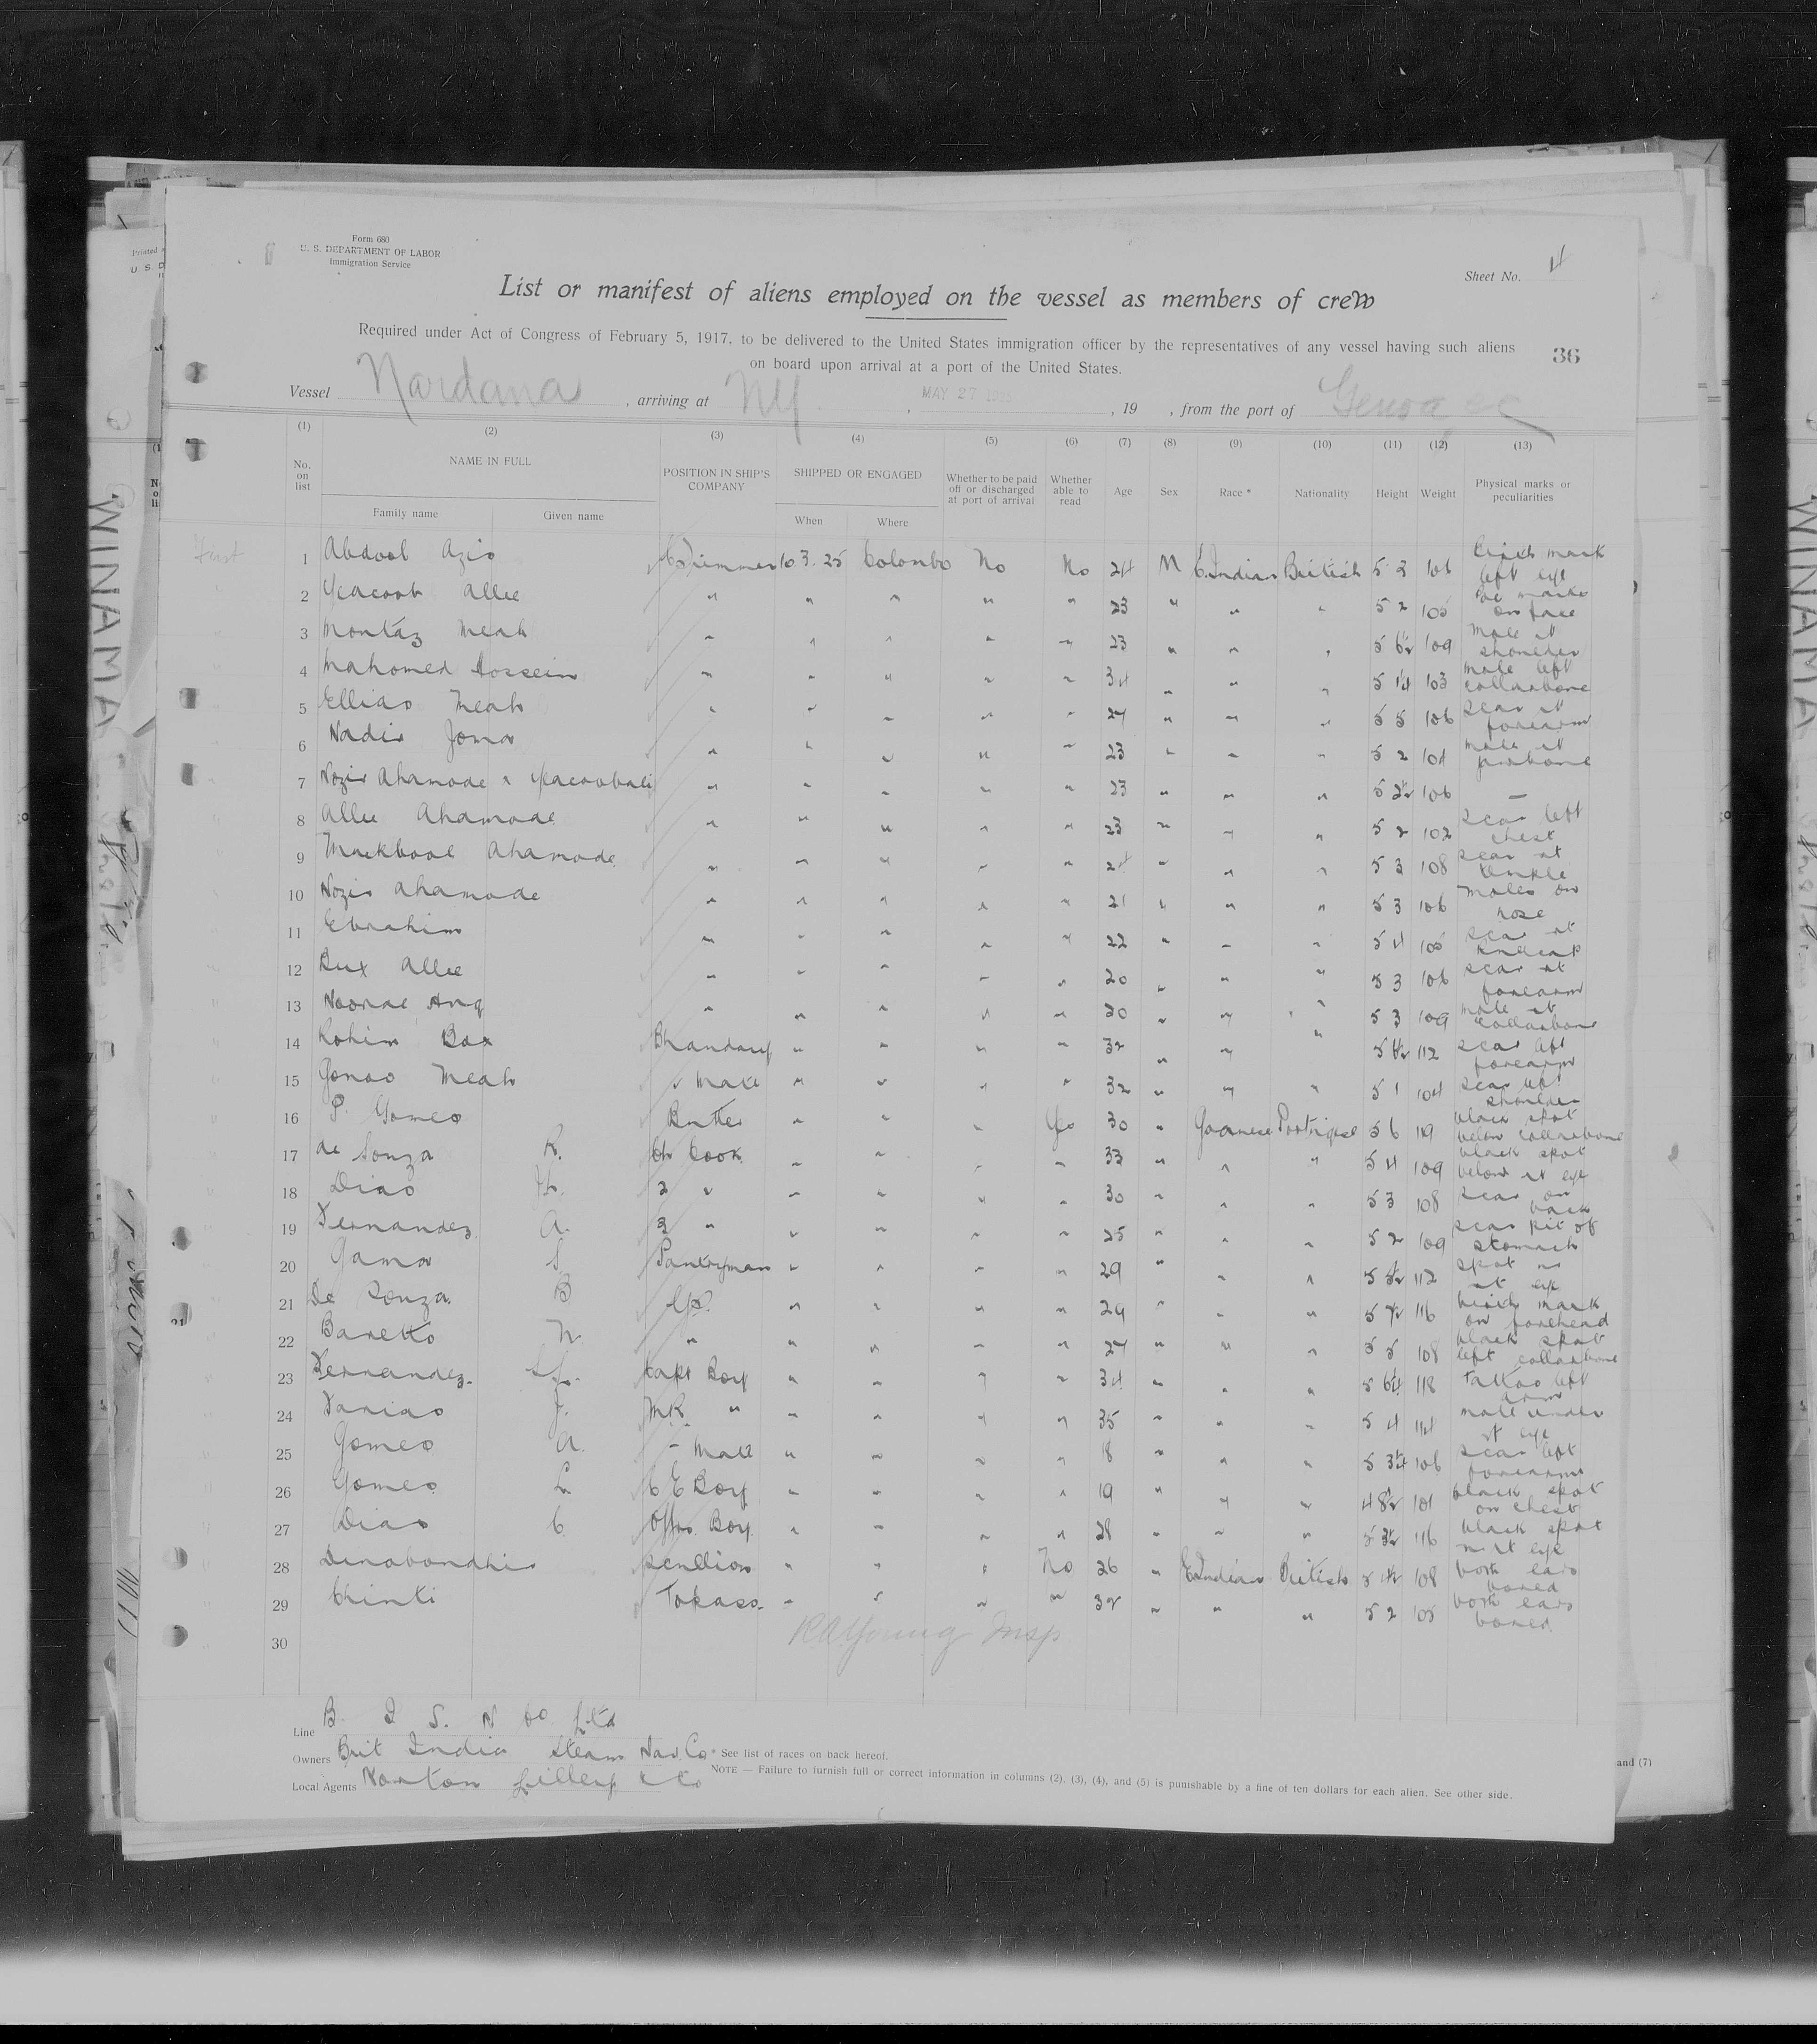 Form 680
U. S. DEPARTMENT OF LABOR
Immigration Service
Sheet No. 4
List or manifest of aliens employed on the vessel as members of crew
Required under Act of Congress of February 5, 1917, to be delivered to the United States immigration officer by the representatives of any vessel having such aliens
on board upon arrival at a port of the United States.
36
Vessel Nardana, arriving at NY, MAY 27 1925, 19 , from the port of Genoa
(1) (2) (3) (4) (5) (6) (7) (8) (9) (10) (11) (12) (13)
No. on list NAME IN FULL POSITION IN SHIP'S COMPANY SHIPPED OR ENGAGED Whether to be paid off or discharged at port of arrival Whether able to read Age Sex Race * Nationality Height Weight Physical marks or peculiarities
Family name Given name When Where
First 1 Abdool Azis C Trimmer 10.3.25 Colombo No No 24 M E.Indian British 5 3 106 birth mark left eye
2 Yeacoob Allee " " " " " 23 " " " 5 2 105 on face
3 Montaz Meah " " " " " 23 " " " 5 6½ 109 mole rt shoulder
4 Mahomed Hossein " " " " " 34 " " " 5 1¼ 103 mole left collarbone
5 Ellias Meah " " " " " 27 " " " 5 5 106 scar rt forearm
6 Nadir Joma " " " " " 23 " " " 5 2 104 mole rt jawbone
7 Nozir Ahamode x Yacoobali " " " " " 23 " " " 5 2½ 106 —
8 Allee Ahamode " " " " " 23 " " " 5 2 102 scar left chest
9 Mackbool Ahamode " " " " " 24 " " " 5 3 108 scar rt ankle
10 Nozir Ahamode " " " " " 21 " " " 5 3 106 moles on nose
11 Ebrahim " " " " " 22 " " " 5 4 105 scar rt kneecap
12 Bux Allee " " " " " 20 " " " 5 3 106 scar rt forearm
13 " " " " " 20 " " " 5 3 109 mole rt collarbone
14 Rohim Box Bhandary " " " " 32 " " " 5 112 scar left forearm
15 Gonoo Meah " Mate " " " " 32 " " " 5 1 104 scar left shoulder
16 P. Gomes Butler " " " Yes 30 " Goanese Portugese 5 6 119 black spot below collarbone
17 de Souza R. Ch Cook " " " " 33 " " " 5 4 109 black spot below rt eye
18 Dias 2 " " " " " 30 " " " 5 3 108 scar on back
19 Fernandez A. 3 " " " " " 25 " " " 5 2 109 scar pit of stomach
20 Gama S. Pantryman " " " " 29 " " " 5 112 spot rt eye
21 De Souza B. " " " " 29 " " " 5 7½ 116 birth mark on forehead
22 Baretto N. " " " " " 27 " " " 5 5 108 black spot left collarbone
23 Fernandez Capt Boy " " " " 34 " " " 5 6¼ 118 tattoo left arm
24 Farias J. MR " " " " " 35 " " " 5 4 114 mole under rt eye
25 Gomes A. " Mate " " " " 18 " " " 5 3¼ 106 scar left forearm
26 Gomes L. C E Boy " " " " 19 " " " 4 8½ 101 black spot on chest
27 Dias C. Offrs. Boy " " " " 28 " " " 5 3½ 116 black spot rt eye
28 Dinabondhu Scullion " " " No 26 " E.Indian British 5 4½ 108 both ears bored
29 Chinti Topass " " " " 32 " " " 5 2 105 both ears bored
30
RA Young Insp
Line B. I S. N Co. Ltd
Owners Brit India Steam Nav. Co. * See list of races on back hereof.
Local Agents Norton Lilley & Co
NOTE — Failure to furnish full or correct information in columns (2), (3), (4), and (5) is punishable by a fine of ten dollars for each alien. See other side.
and (7)
WINAMA